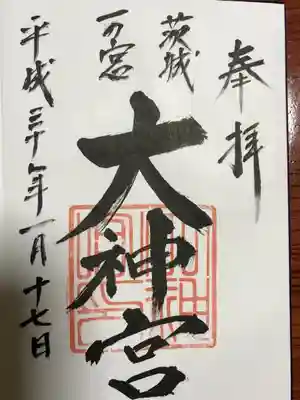 奉拝
茨城
一の宮
大神宮
平成三十年一月十七日